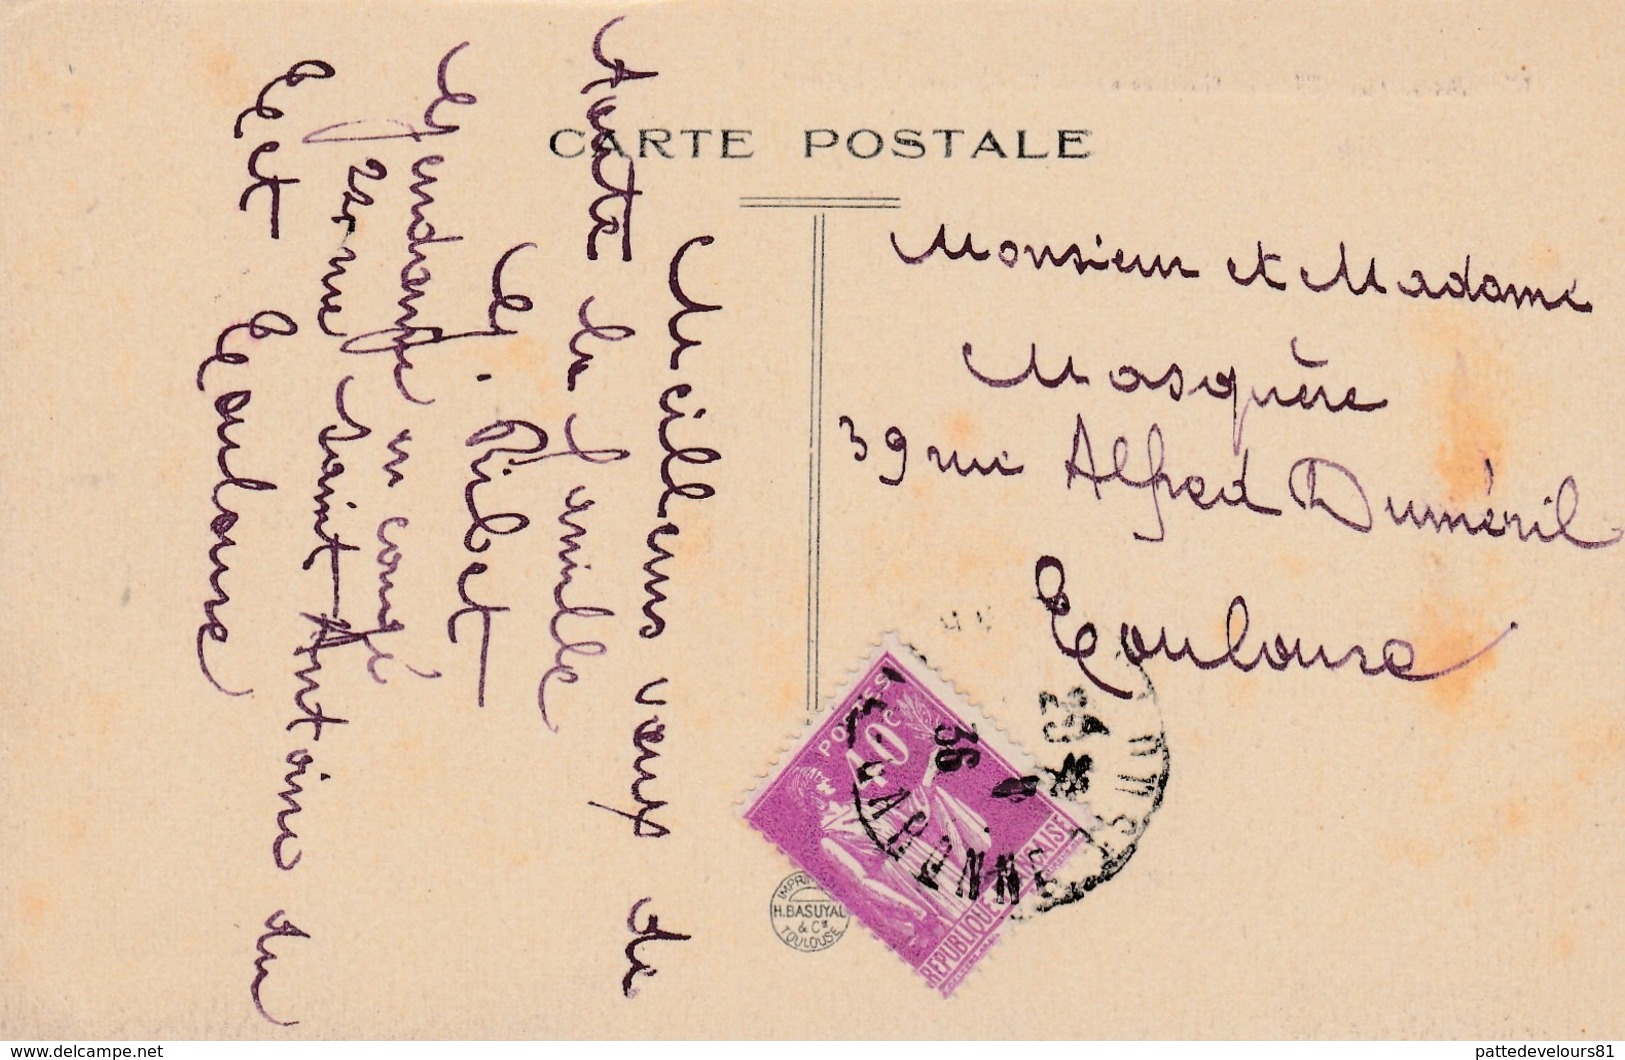 CARTE POSTALE
Meilleurs vœux de
toute la famille
G. Ribet
Gendarme en congé
22 rue Saint-Antoine du
T et Toulouse
Monsieur et Madame
Masquère
39 rue Alfred Duméril
Toulouse
POSTES
40c
REPUBLIQUE FRANÇAISE
36
H. BASUYAU
& Cie
TOULOUSE
delcampe.net
pattedevelours81